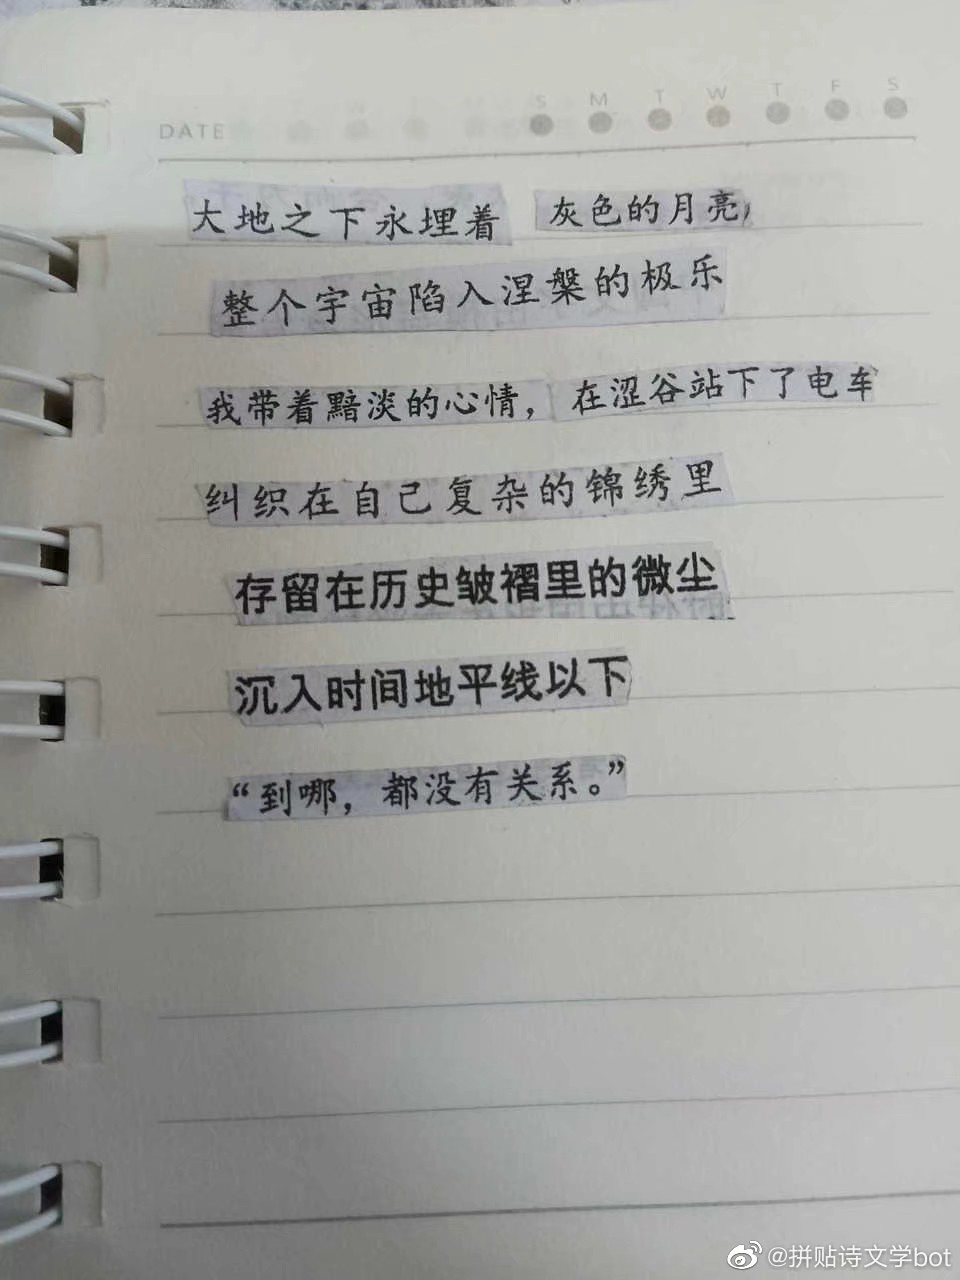 DATE S M T W T F S
大地之下永埋着 灰色的月亮,
整个宇宙陷入涅槃的极乐
我带着黯淡的心情，在涩谷站下了电车
纠织在自己复杂的锦绣里
存留在历史皱褶里的微尘
沉入时间地平线以下
“到哪，都没有关系。”
@拼贴诗文学bot